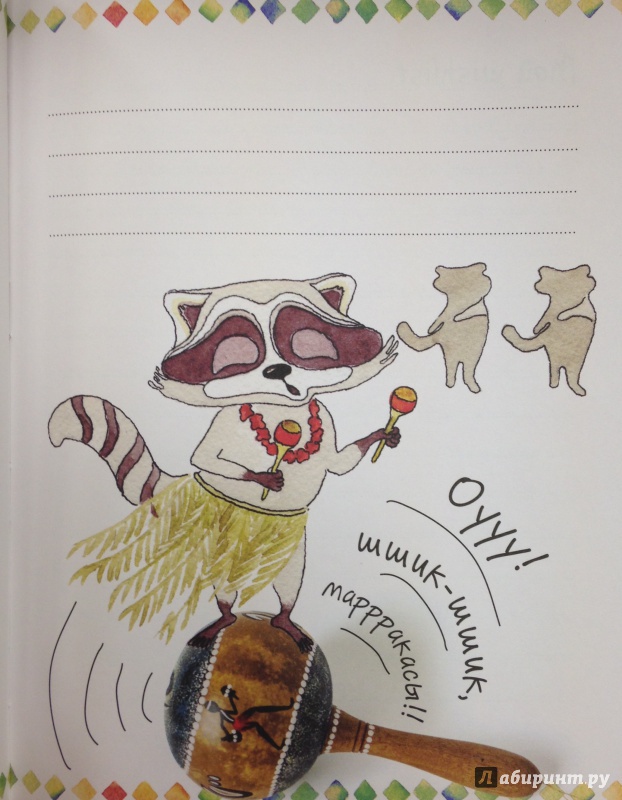 Оууу!
шшик-шшик,
маррракасы!!
Лабиринт.ру